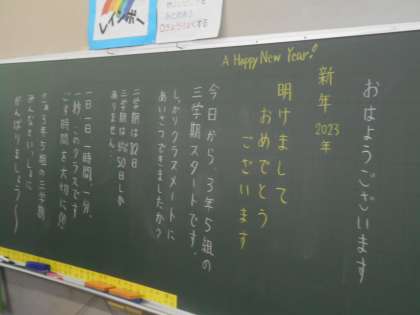 レインボー
A HAPPY NEW YEAR!
おはようございます
新年 2023年
明けまして
おめでとう
ございます
今日から、3年5組の
三学期スタートです。
しっかりクラスメートに
あいさつできましたか?
三学期は
三学期は約50日しか
ありません。
一日一日、一時間、一分、
一秒、このクラスです
ごす時間を大切に
さぁ3年5組の三学期
みんないっしょに
がんばりましょう〜